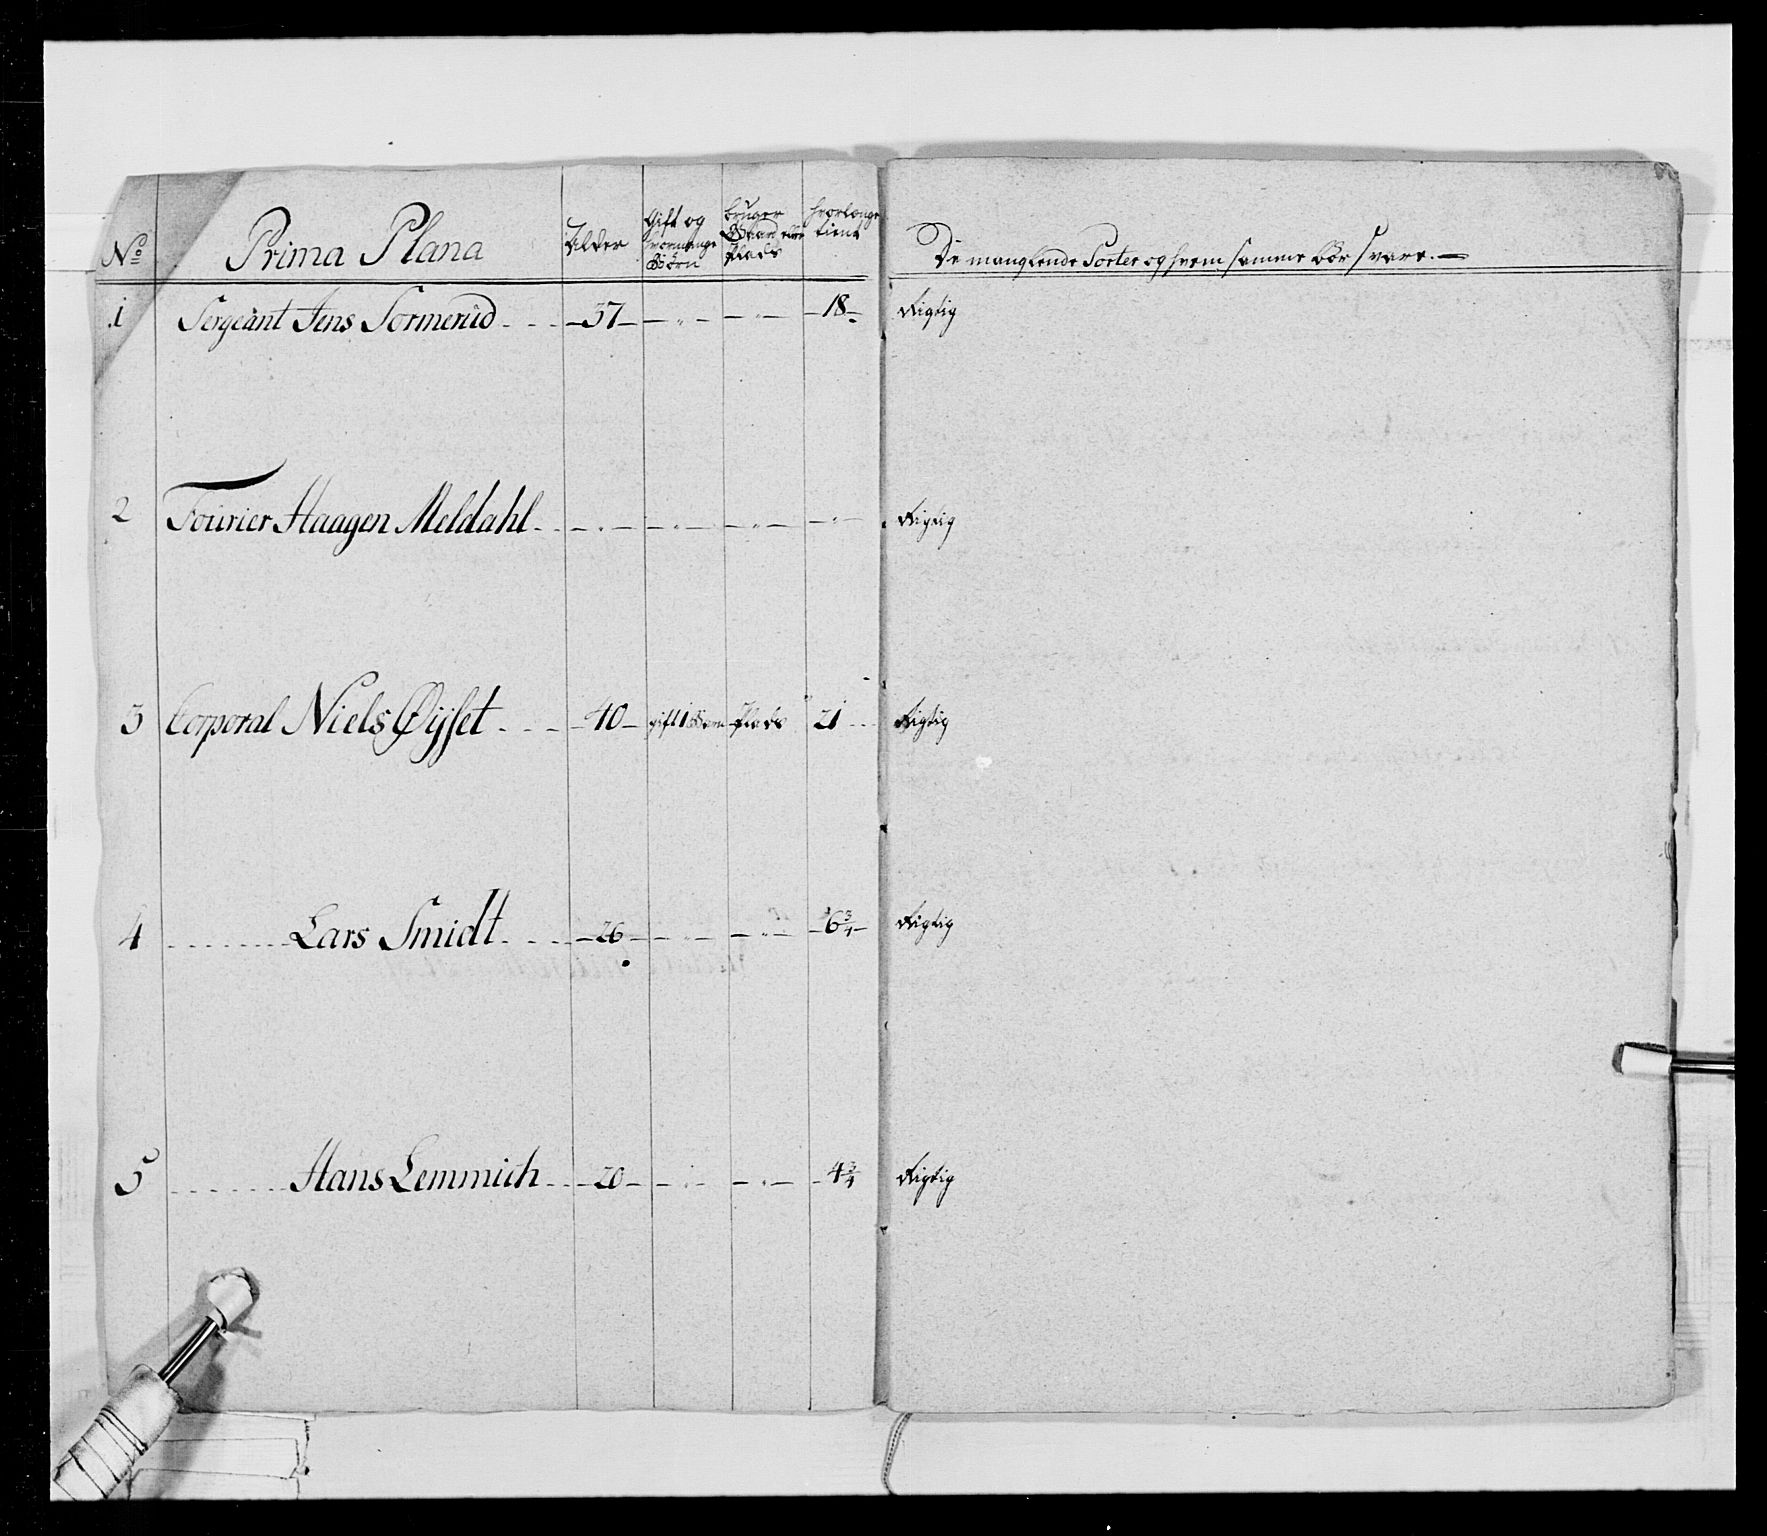 No Prima Plana Alder Gift og hvormange Børn bruger Gaard eller Plads hvorlænge tient De manglende Sorter og hvem samme bør svare. —
1 Sergeant Jens Sormerud - - - 37 - - " - - " - - 18 - Rigtig
2 Fourier Haagen Meldahl - - " - - " - - " - - " - Rigtig
3 Corporal Niels Øijset - - - 40 - gift 1 Barn Plads 21 - - Rigtig
4 - - - - - - Lars Smidt - - - 26 - - " - - " - - 6 3/4 - Rigtig
5 - - - - - - Hans Lemmich - - 20 - - " - - " - - 4 3/4 Rigtig